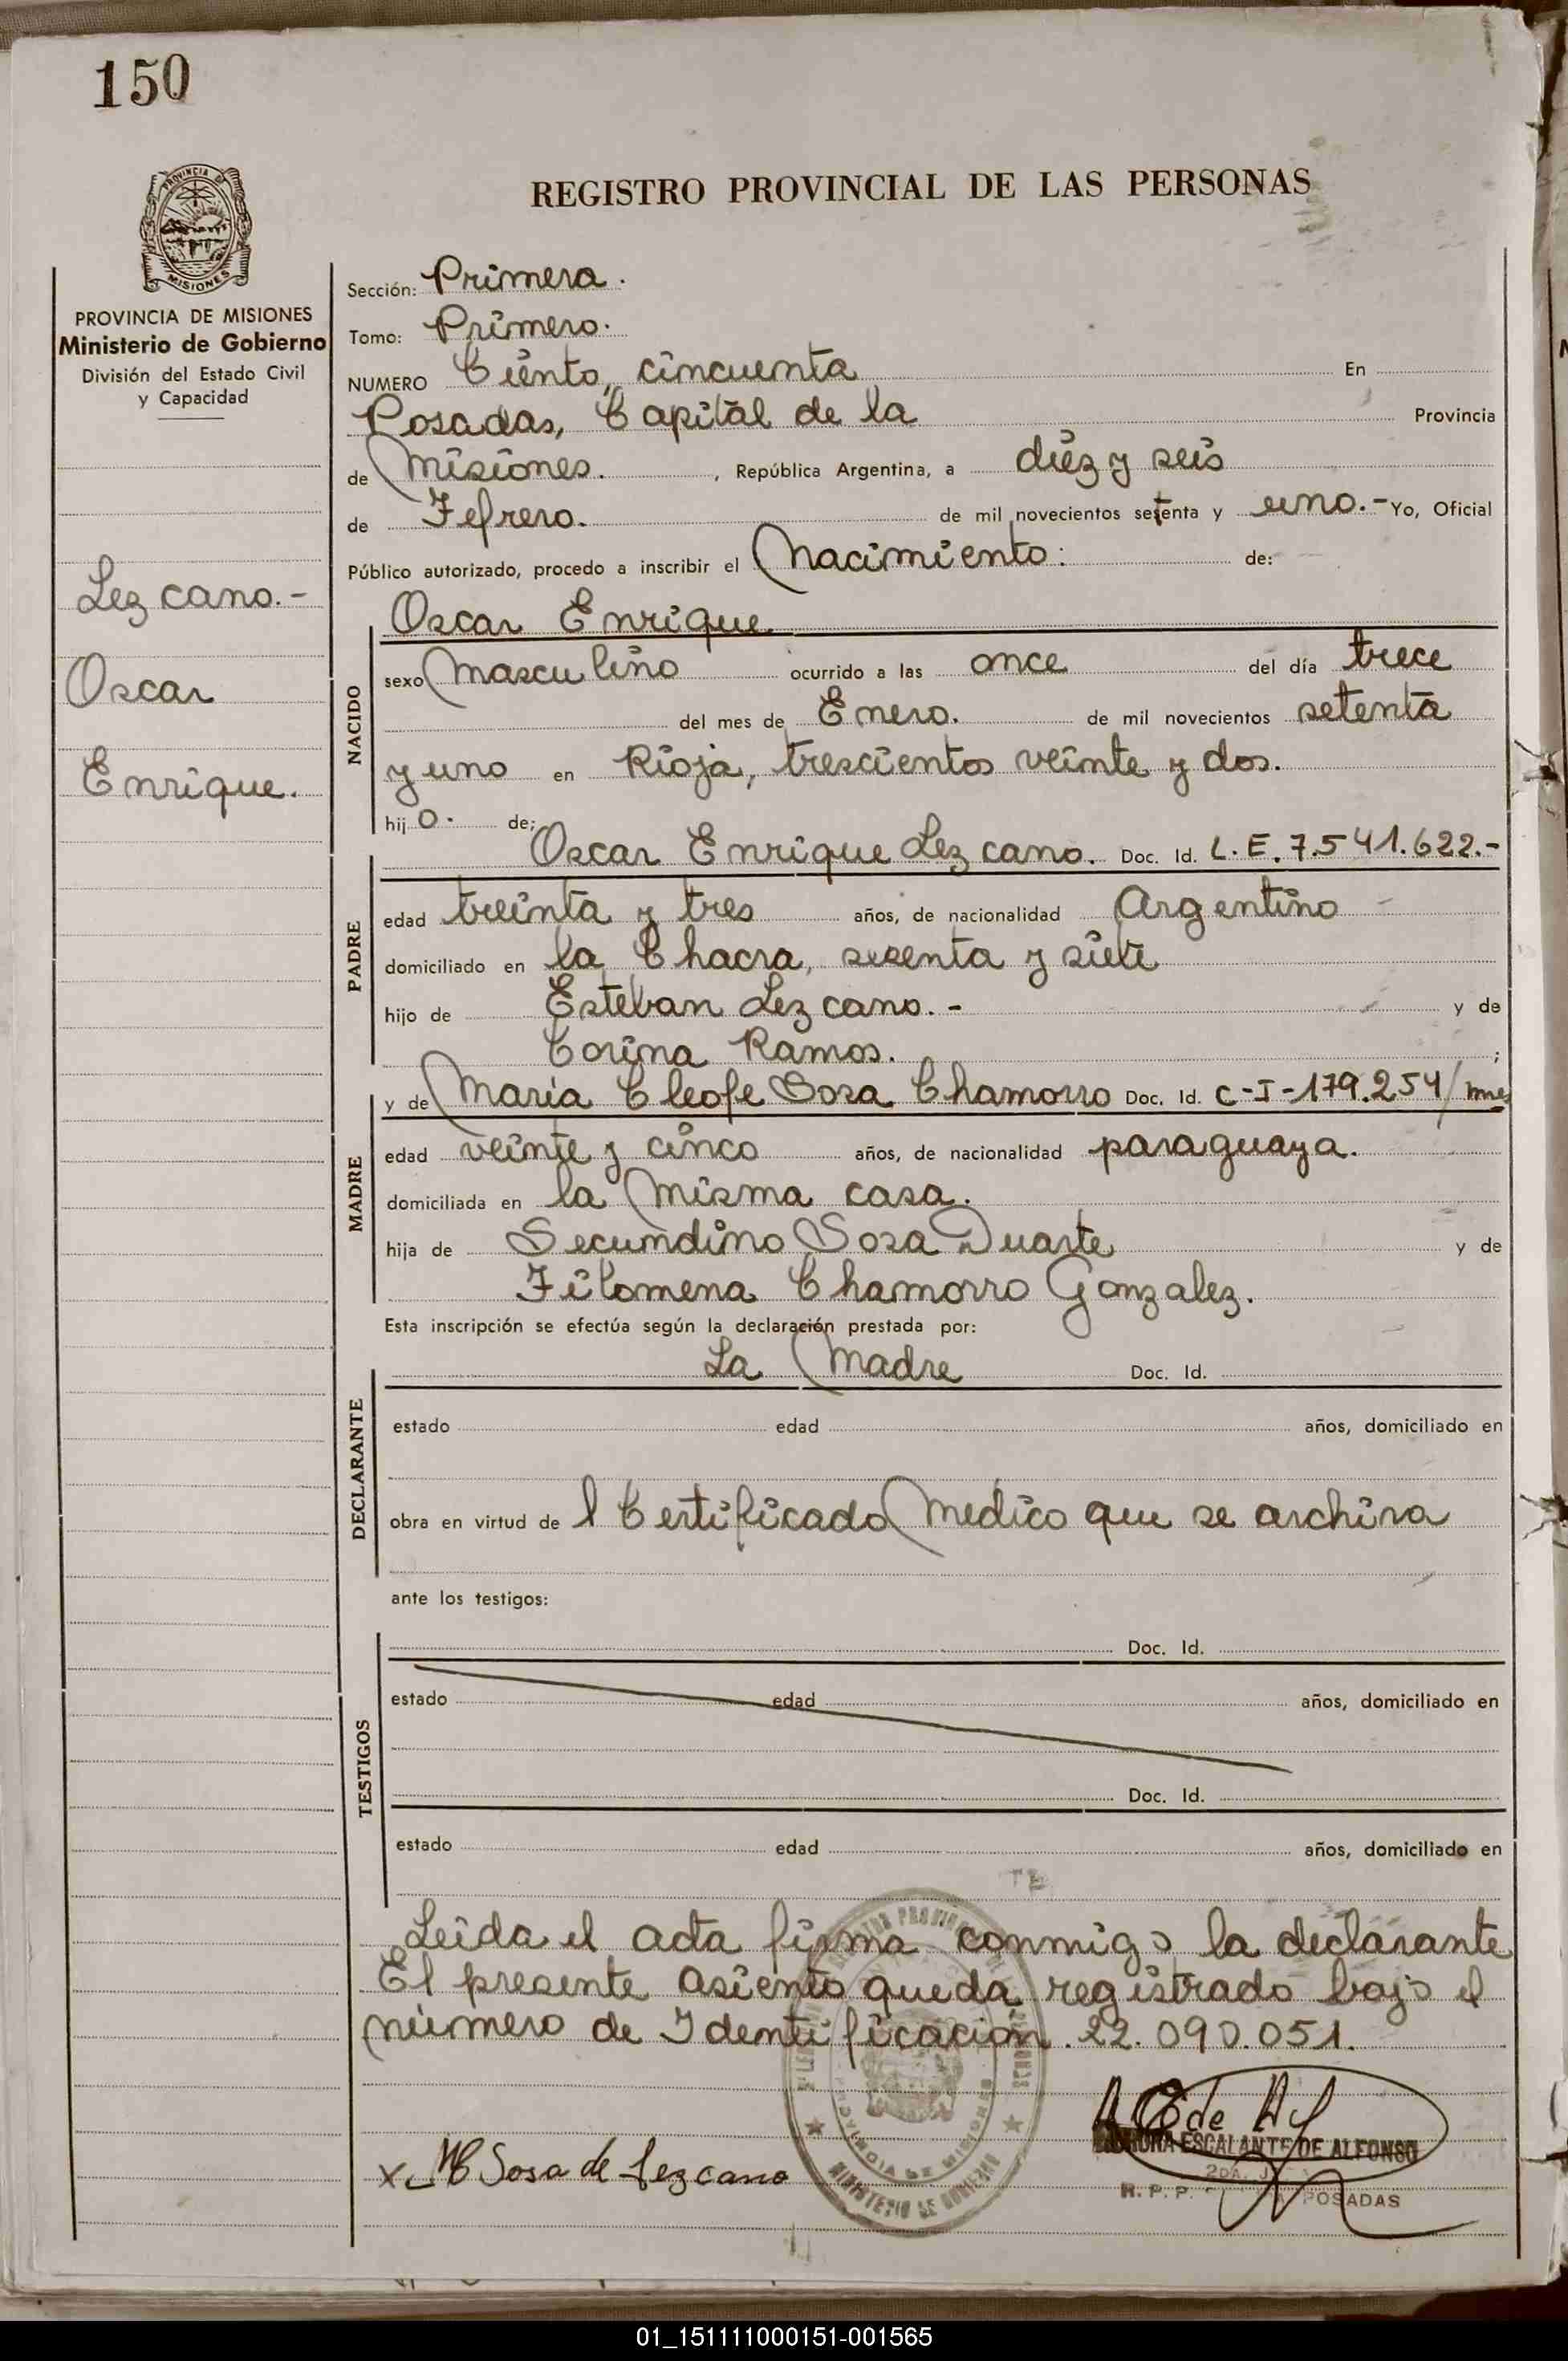 150
PROVINCIA DE
MISIONES
REGISTRO PROVINCIAL DE LAS PERSONAS
PROVINCIA DE MISIONES
Ministerio de Gobierno
División del Estado Civil
y Capacidad
Lezcano.-
Oscar
Enrique.
Sección: Primera.
Tomo: Primero.
NUMERO Ciento, cincuenta En
Posadas, Capital de la Provincia
de Misiones. , República Argentina, a diez y seis
de Febrero. de mil novecientos setenta y uno.- Yo, Oficial
Público autorizado, procedo a inscribir el Nacimiento: de:
Oscar Enrique
NACIDO
sexo Masculino ocurrido a las once del día trece
del mes de Enero. de mil novecientos setenta
y uno en Rioja, trescientos veinte y dos.
hij o. de:
Oscar Enrique Lezcano. Doc. Id. L.E. 7.541.622.-
PADRE
edad treinta y tres años, de nacionalidad Argentino
domiciliado en la Chacra, sesenta y siete
hijo de Esteban Lezcano.- y de
Corina Ramos. ;
y de Maria Cleofe Sosa Chamorro Doc. Id. C-I-179.254/mnes
MADRE
edad veinte y cinco años, de nacionalidad paraguaya.
domiciliada en la Misma casa.
hija de Secundino Sosa Duarte y de
Filomena Chamorro Gonzalez.
Esta inscripción se efectúa según la declaración prestada por:
La Madre Doc. Id.
DECLARANTE
estado edad años, domiciliado en
obra en virtud de l Certificado Medico que se archiva
ante los testigos:
TESTIGOS
Doc. Id.
estado edad años, domiciliado en
Doc. Id.
estado edad años, domiciliado en
Leida el acta firma conmigo la declarante
El presente asiento queda registrado bajo el
número de Identificacion. 22.090.051.
x MC Sosa de Lezcano
ESCALANTE DE ALFONSO
R.P.P. POSADAS
MINISTERIO DE GOBIERNO
PROVINCIA DE MISIONES
01_151111000151-001565